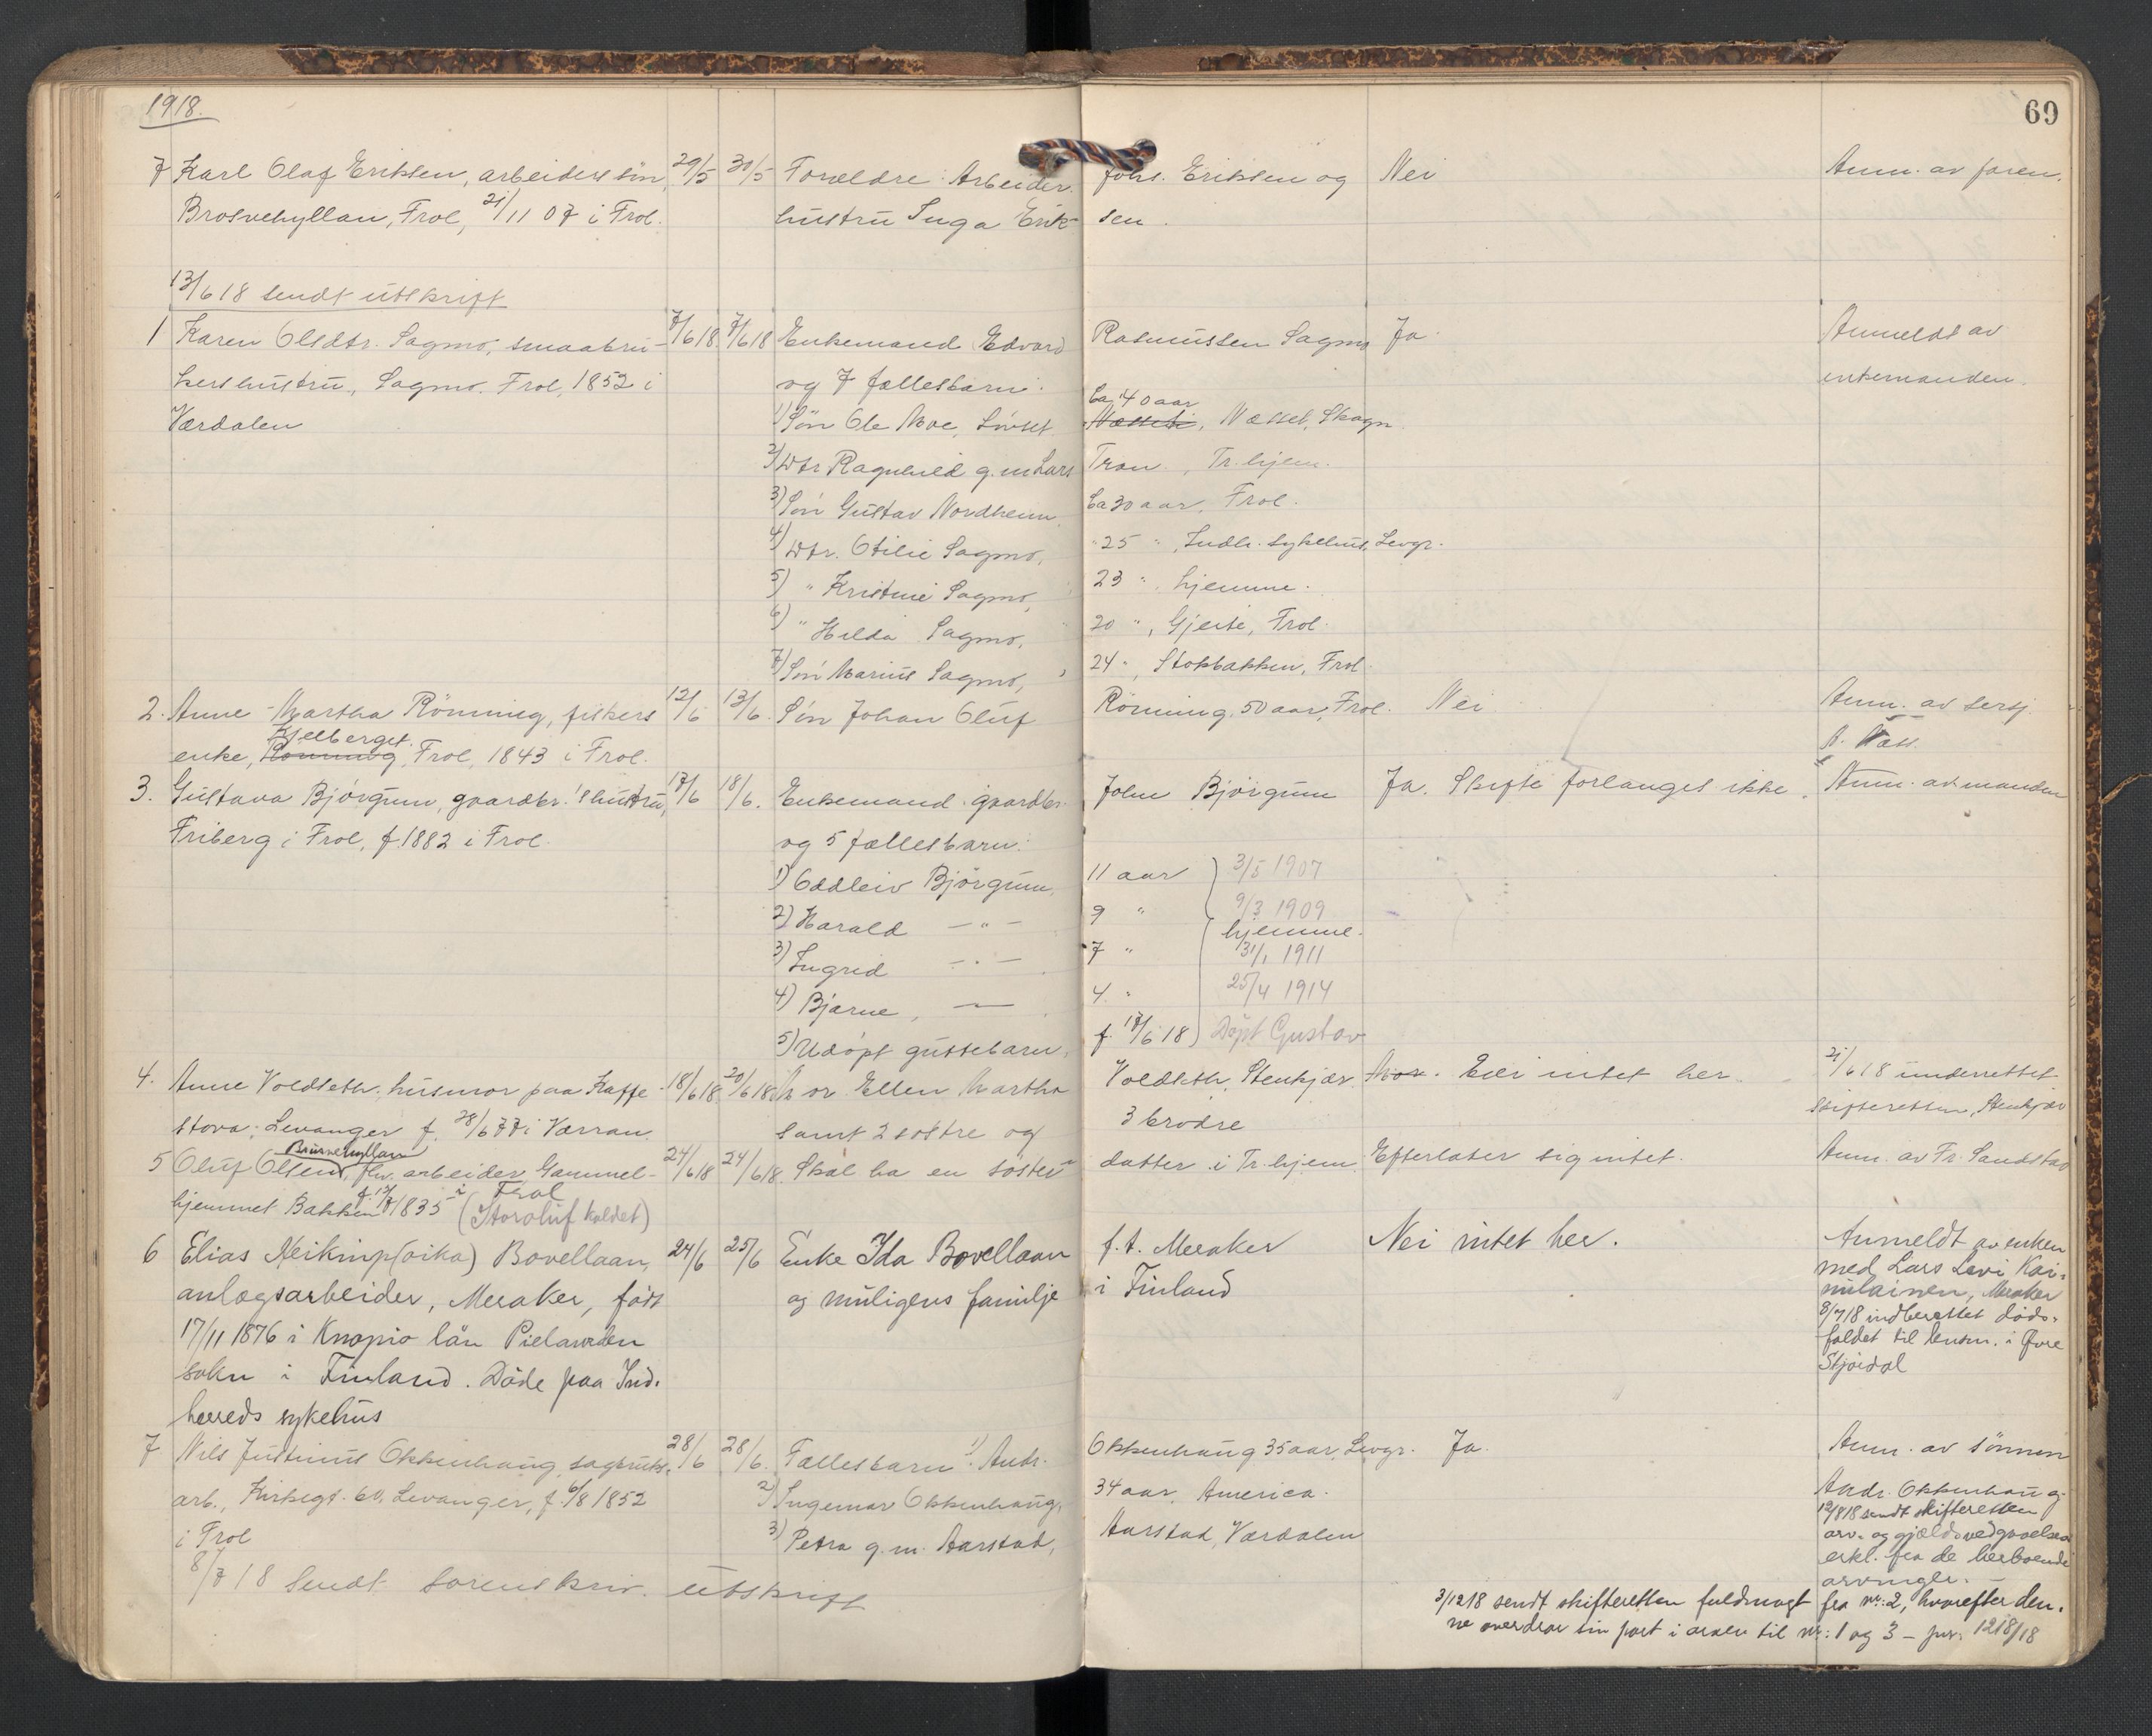 1918.
69
7 Karl Olaf Eriksen, arbeiders sön, 29/5 30/5 Forældre: Arbeider Johs. Eriksen og Nei Anm. av faren.
Brosvehyllan, Frol, 21/11 07 i Frol. hustru Inga Erik- sen.
13/6 18 sendt utskrift
1 Karen Olsdtr. Sagmo, smaabru- 7/6 18 7/6 18 Enkemand Edvard Rasmussen Sagmo Ja. Anmeldt av
kers hustru, Sagmo, Frol, 1852 i og 7 fællesbarn: enkemanden.
Værdalen 1) Sön Ole Moe, ca. 40 aar Næssel, Skogn.
2) Dtr Ragnhild g.m Lars Tron, Tr.hjem.
3) Sön Gustav Nordheim, ca 30 aar, Frol.
4) Dtr. Otilie Sagmo, " 25 ", Indh. sykehus, Levgr.
5) " Kristine Sagmo, 23 ", hjemme.
6) " Hilda Sagmo, 20 ", Gjeite, Frol.
7) Sön Marius Sagmo, 24 ", Stokbakken, Frol.
2. Anne Martha Rönning, fiskers 12/6 13/6. Sön Johan Oluf Rönning, 50 aar, Frol. Nei Anm. av sersj.
Kjelberget.
enke, Rönning, Frol, 1843 i Frol.
3. Gustava Björgum, gaardbr.'s hustru, 17/6 18/6. Enkemand gaardbr. John Björgum Ja. Skifte forlanges ikke. Anm. av manden
Friberg i Frol, f. 1882 i Frol. og 5 fællesbarn:
1) Oddleiv Björgum, 11 aar 3/5 1907
2) Harald — " — 9 " 9/3 1909
hjemme.
3) Ingrid — " — 7 " 31/1 1911
4) Bjarne, — 4 " 25/4 1914
5) Udöpt guttebarn, f. 17/6 18) Döpt Gustav
4. Anne Voldseth, husmor paa Kaffe- 18/6 18 20/6 18 Mor Ellen Martha Voldseth, Stenkjær. Eier intet her. 21/6 18 underrettet
stova, Levanger f. 28/6 77 i Værran. samt 2 søstre og 3 brødre skifteretten, Stenkjær
Brusvehyllan
5 Oluf Olsen, fhv. arbeider Gammel- 24/6 18 24/6 18. Skal ha en søster- datter i Tr.hjem. Efterlater sig intet. Anm. av Fr. Sandstad
hjemmet Bakken f. 17/7 1835 i Frol (Storoluf kaldet)
6 Elias Heikinp(oika) Bovellaan, 24/6 25/6 Enke Ida Bovellaan f.t. Meraker Nei intet her. Anmeldt av enken
anlægsarbeider, Meraker, født og muligens familje i Finland med Lars Levi Kai-
17/11 1876 i Knopio län Pielaveden nulainen, Meraker
sokn i Finland. Døde paa Ind- 8/7 18 indberettet døds-
herreds sykehus faldet til lensm. i Øvre
Stjørdal
7 Nils Justinus Okkenhaug, sagbruks- 28/6 28/6. Fællesbarn: 1) Andr. Okkenhaug 35 aar, Levgr. Ja. Anm. av sönnen
arb., Kirkegt. 60, Levanger, f. 6/8 1852 2) Ingemar Okkenhaug, 34 aar, America. Andr. Okkenhaug.
i Frol 3) Petra g.m. Aarstad, Aarstad, Værdalen
12/8 18 sendt skifteretten
arv- og gjældsvedgaaelses
erkl. fra de herboende
arvinger.
8/7 18 Sendt sorenskriv. utskrift
3/12 18 sendt skifteretten fuldmagt fra nr: 2, hvorefter den-
ne overdrar sin part i arven til nr: 1 og 3 – jnr. 1218/18